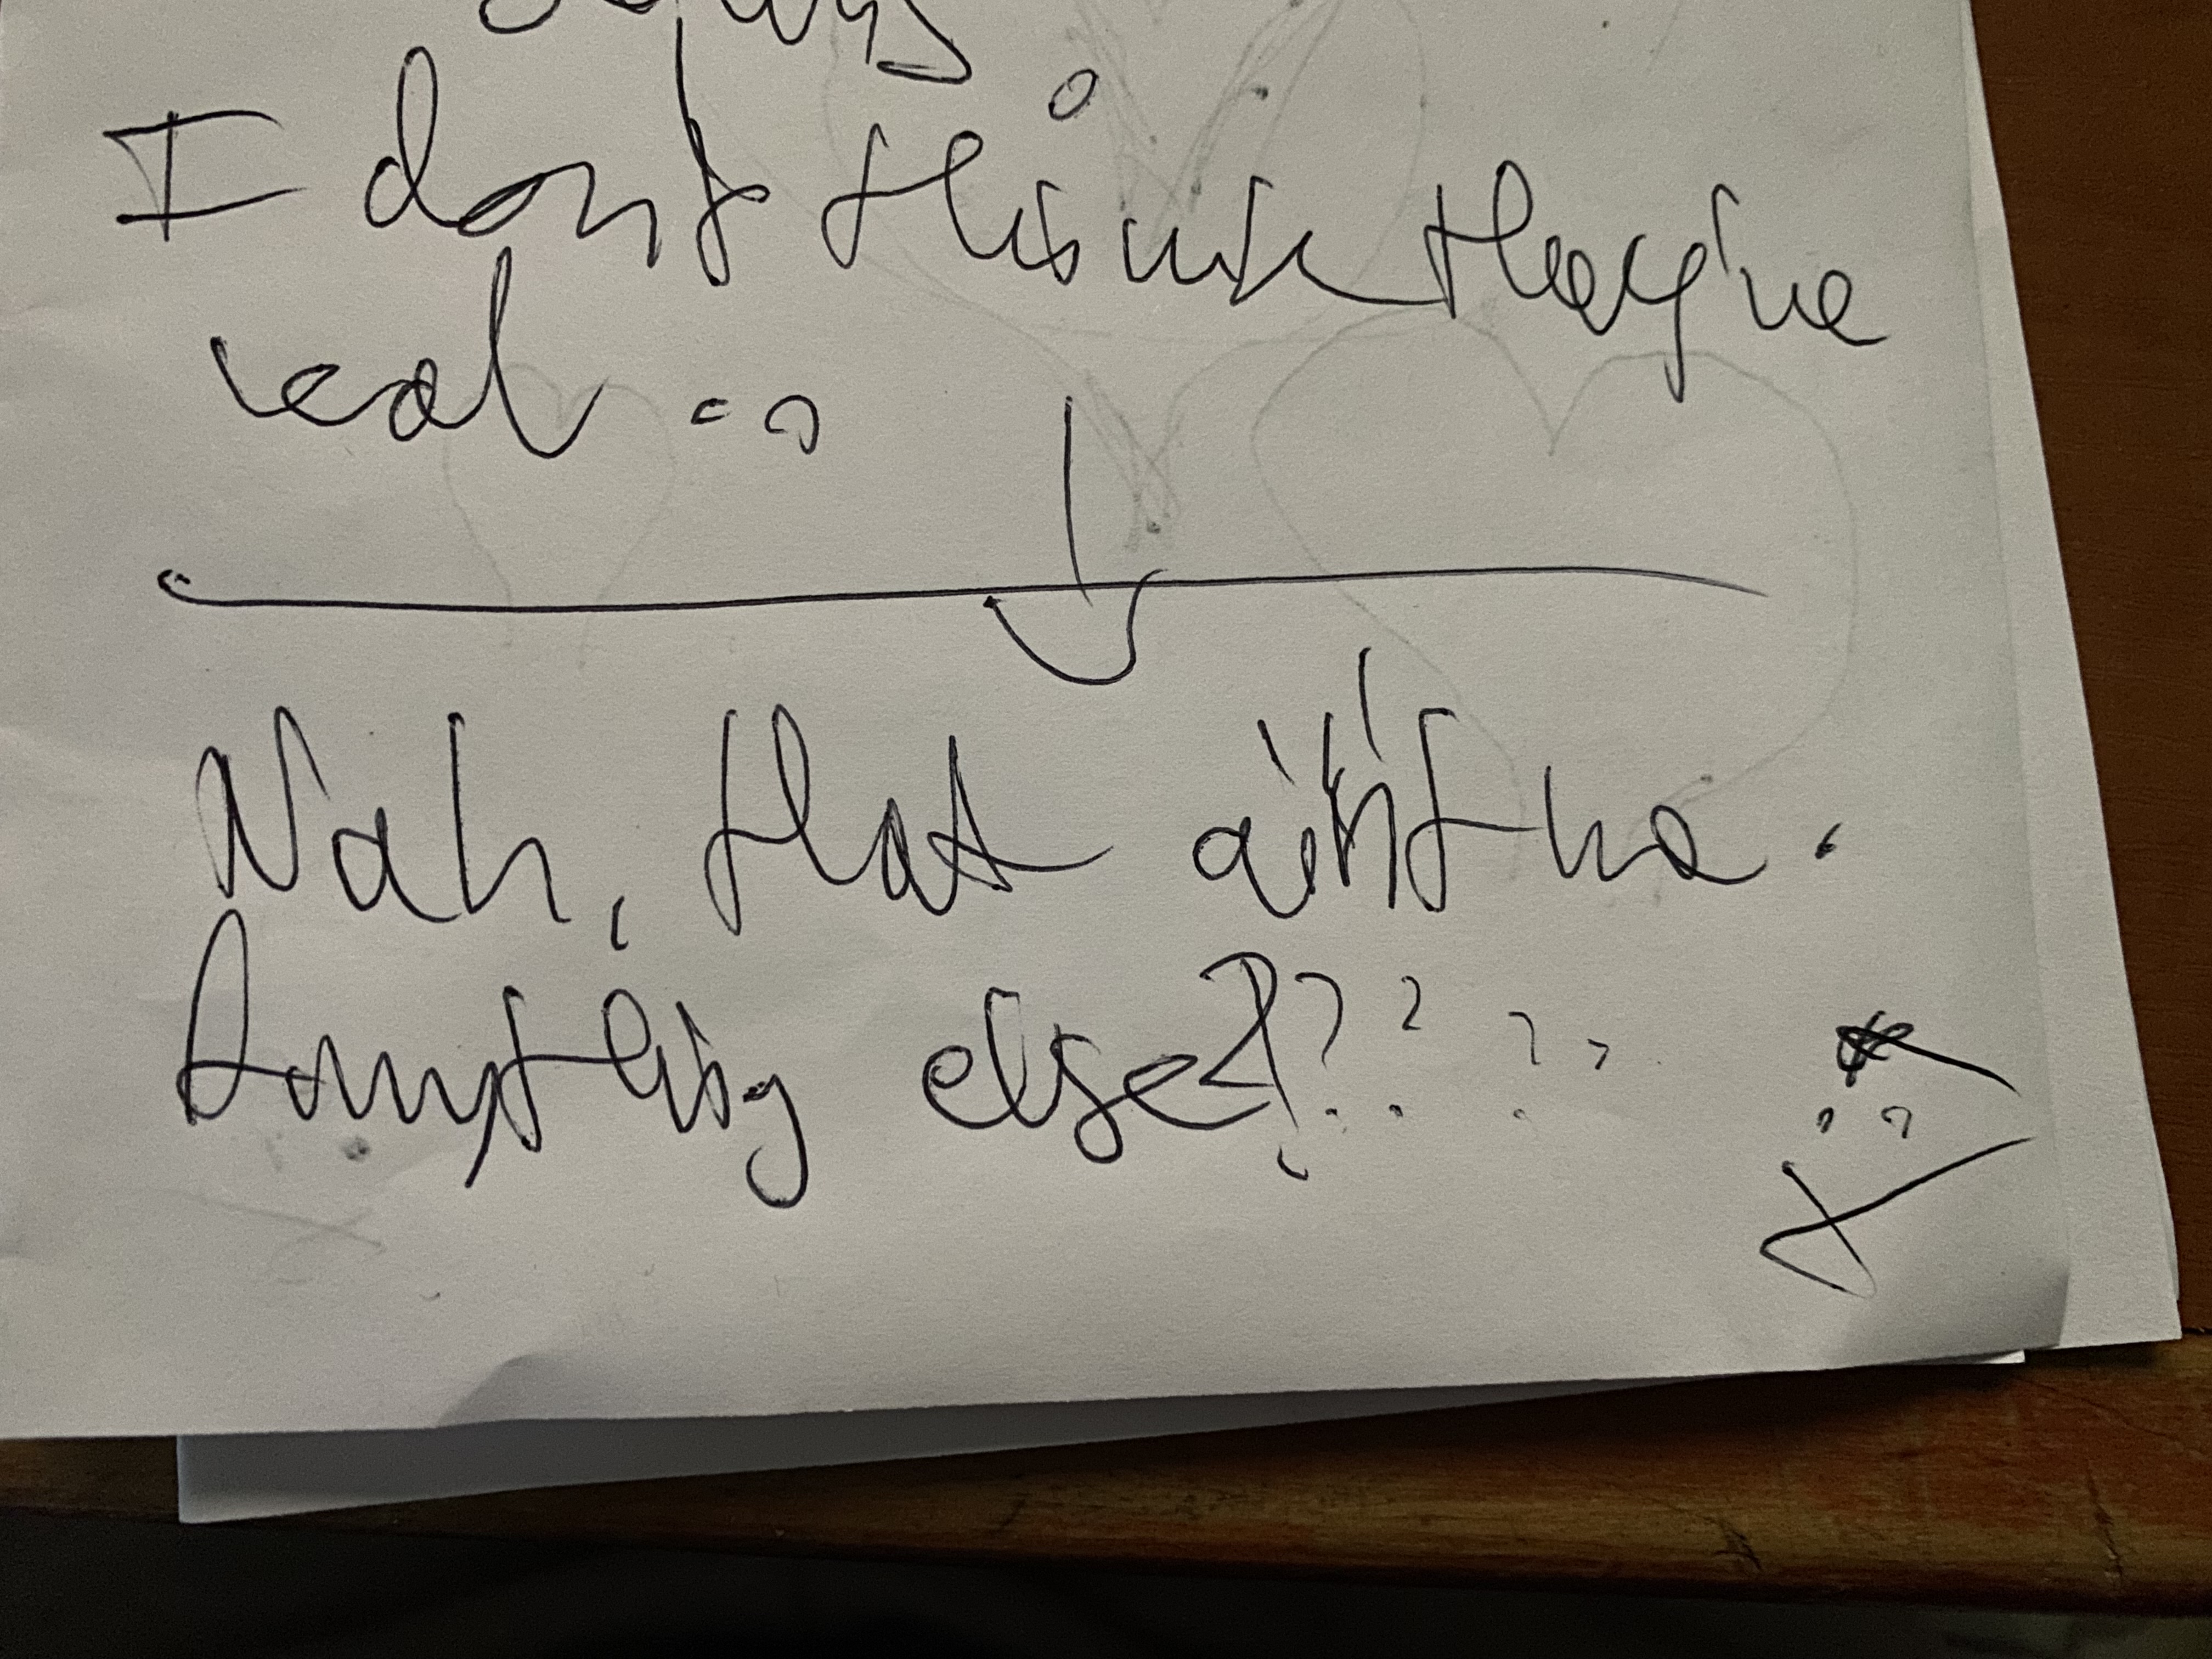 I don't think they're
real
Nah, that ain't me.
Anything else?????